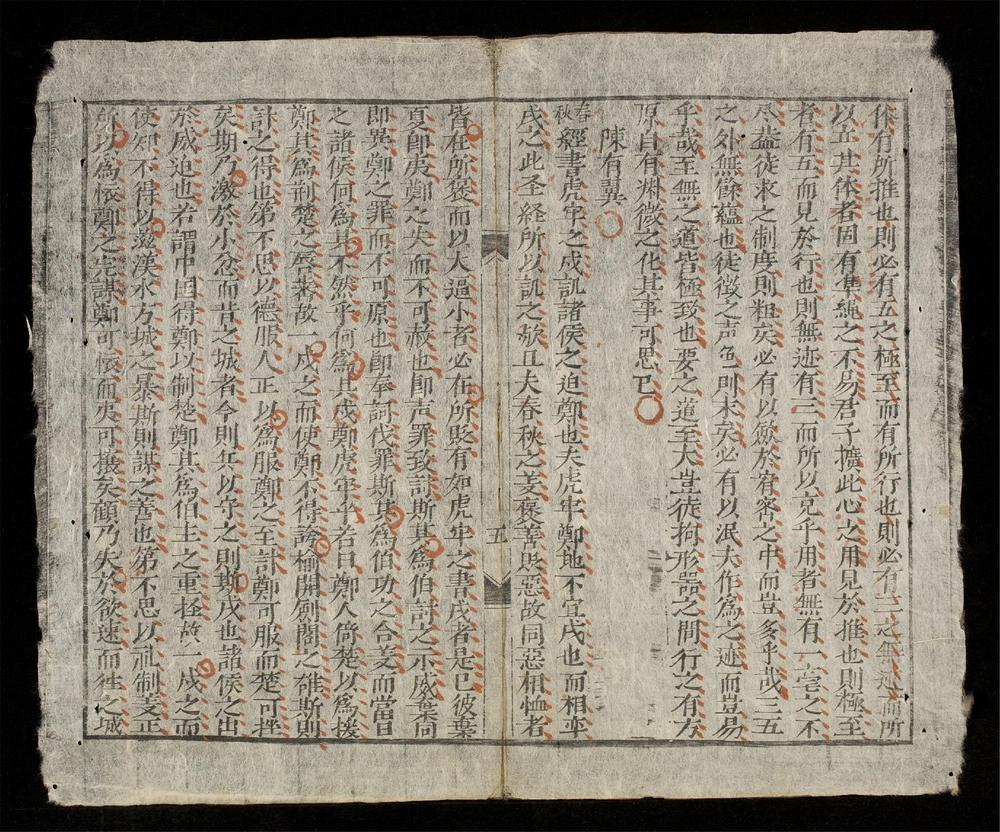 你有所推也則必有五之極至而有所行也則必有三之無迹而所
以立其体者固有準繩之不易君子擴此心之用見於推也則極至
者有五而見於行也則無迹有三而所以克乎用者無有一毫之不
尽蓋徒求之制度則粗矣必有以歛於有密之中而豈多乎哉三五
之外無餘蘊也徒徵之声色則末矣必有以泯夫作為之迹而豈易
乎哉至無之道皆極致也要之道至大豈徒拘形器之間行之有方
原自有淵微之化其事可思已
陳有翼
春秋 經書虎牢之戍訊諸侯之迫鄭也夫虎牢鄭地不宜戍也而相率
戍之此圣経所以訊之欤且夫春秋之美褒善貶惡故同惡相恤者
五
皆在所褒而以大逼小者必在所貶有如虎牢之書戍者是已彼棄
夏即夷鄭之失而不可赦也即声罪致討斯其為伯討之示威棄同
即異鄭之罪而不可原也即奉詞伐罪斯其為伯功之合美而當日
之諸侯何為其不然乎何為其戍鄭虎牢乎若曰鄭人倚楚以為援
鄭其為荆楚之唇著故一戍之而使鄭不得誇榆開厠閣之雄斯則
計之得也第不思以德服人正以為服鄭之至計鄭可服而楚可挫
矣期乃激於小忿而昔之城者今則兵以守之則斯戍也諸侯之出
於威迫也若謂中囯得鄭以制楚鄭其為伯主之重拴故一戍之而
使知不得以滋漢水方城之暴斯則謀之善也第不思以礼制変正
所以為懷鄭之完謀鄭可懷而夷可攘矣顧乃失於欲速而徃之城